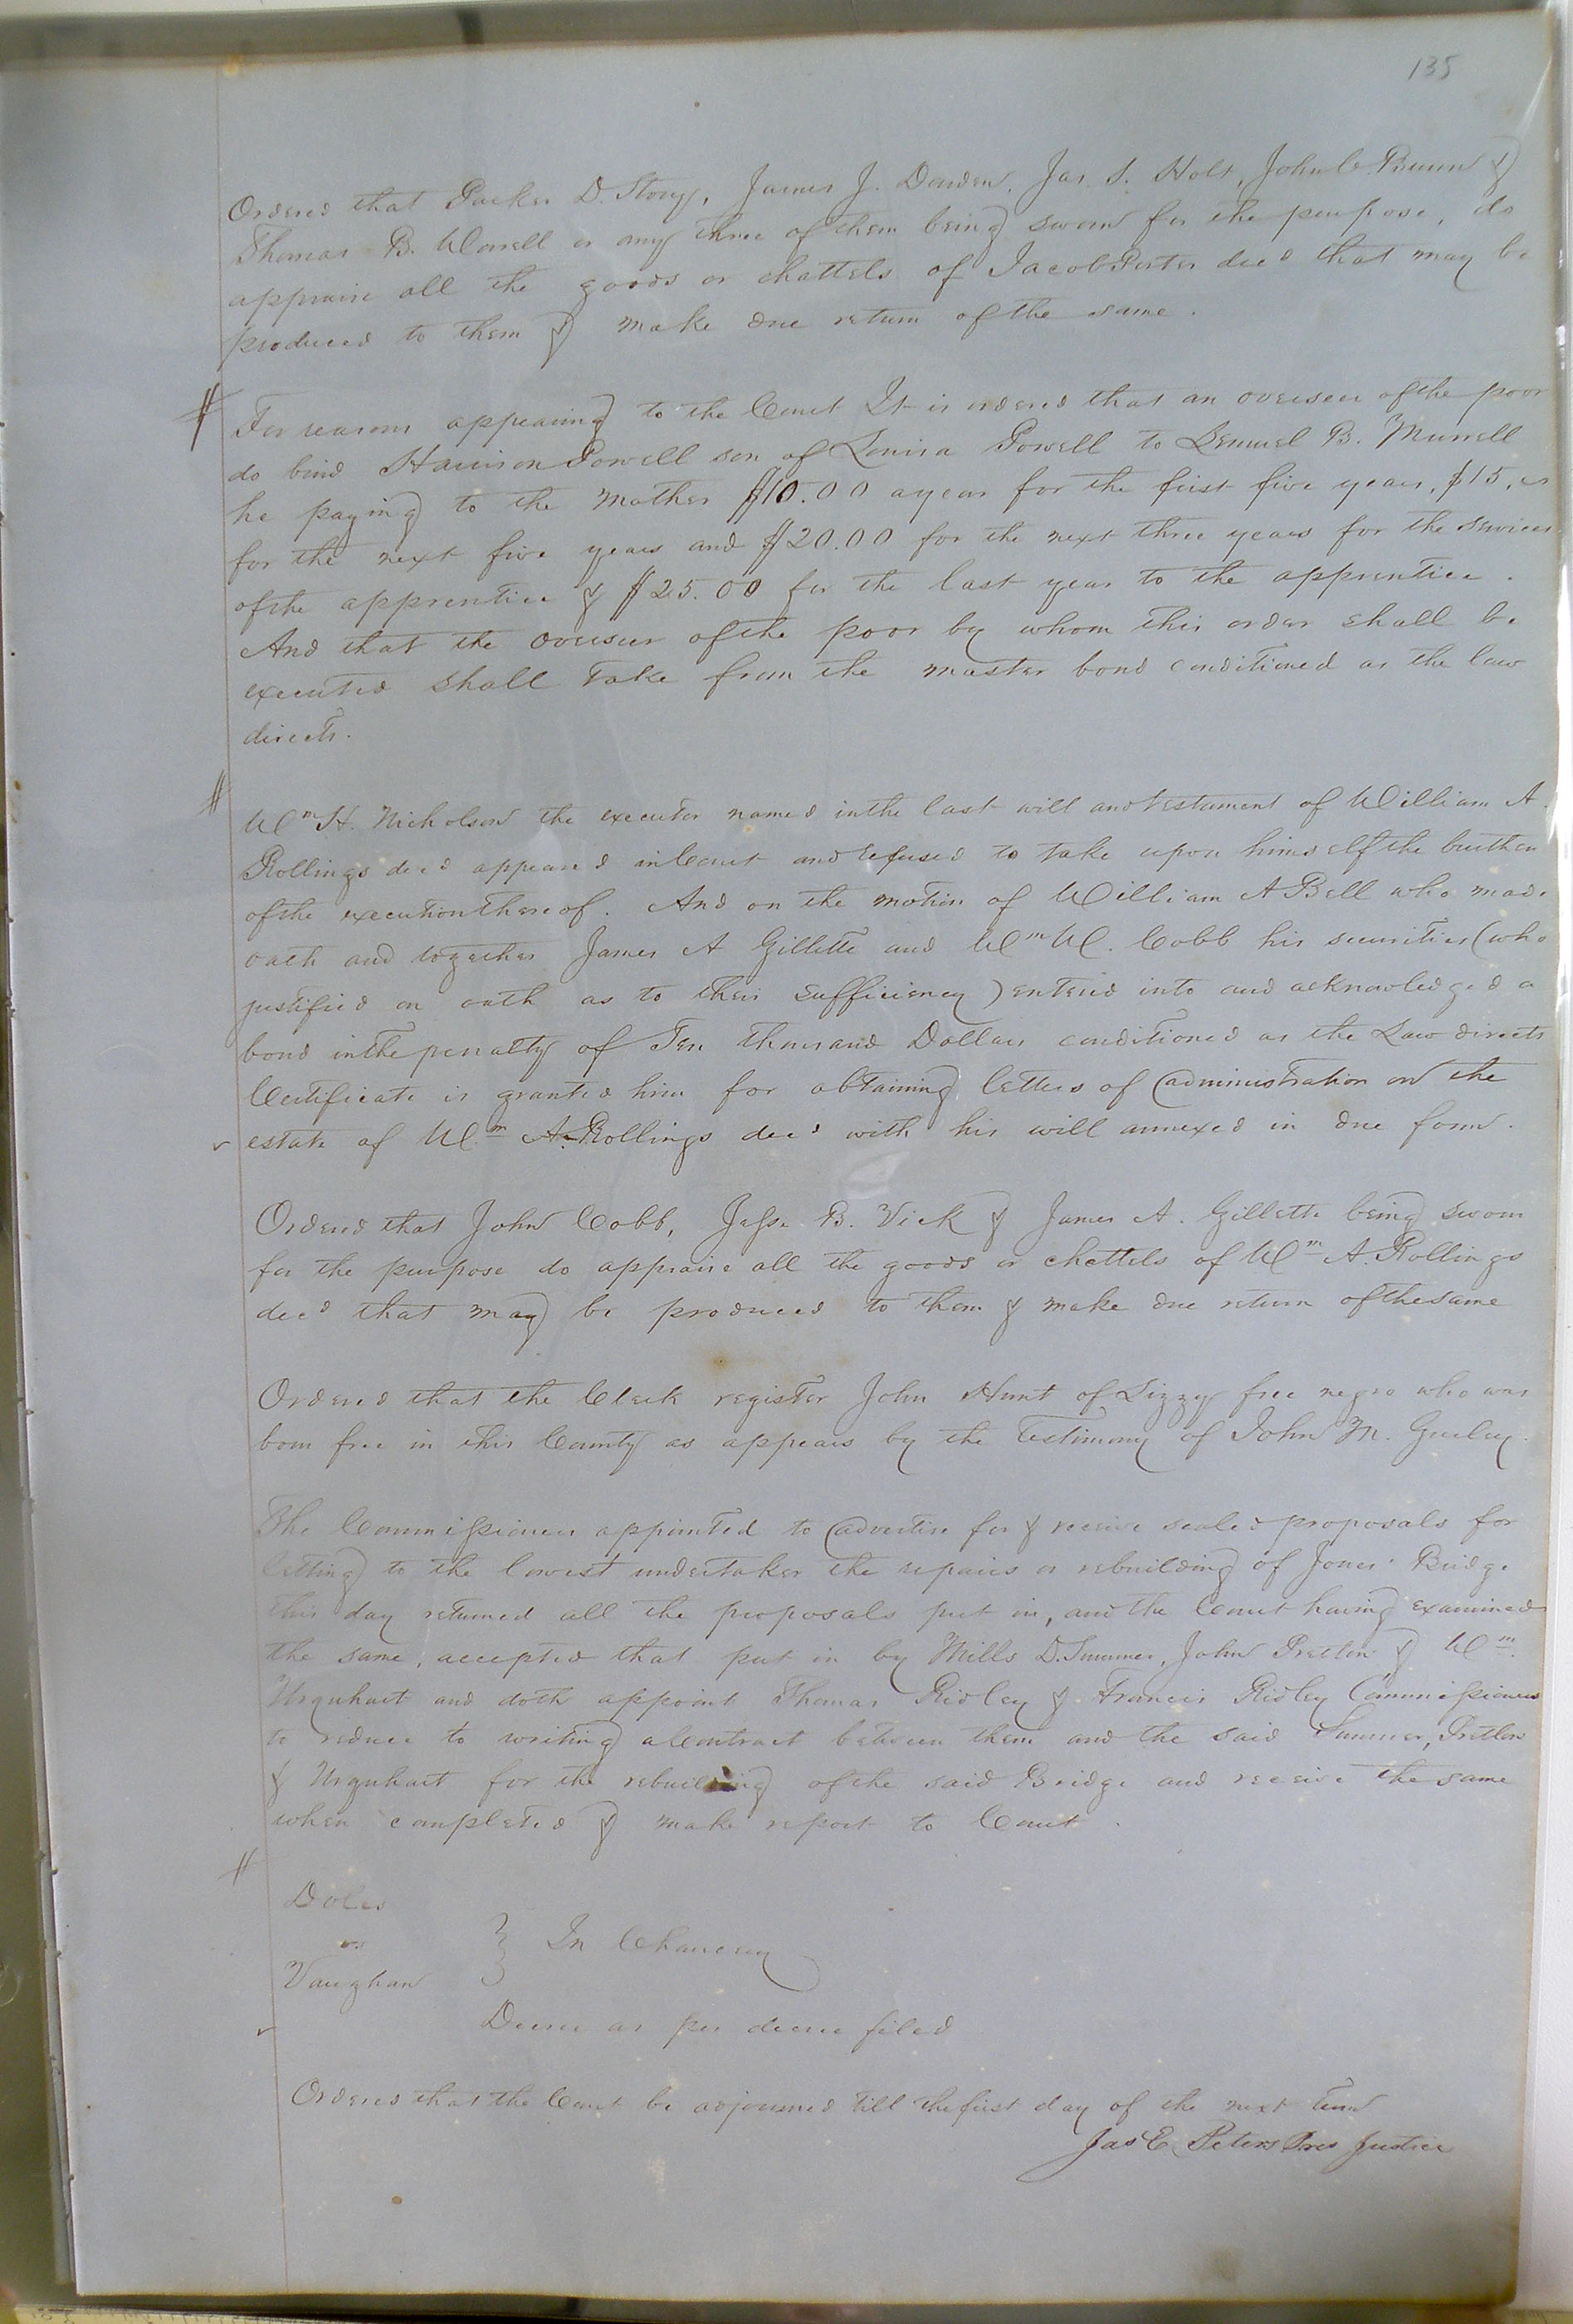 135
Ordered that Parker D. Story, James J. Darden, Jas. S. Holt, John C. Brunn &
Thomas B. Worrell or any three of them being sworn for the purpose, do
appraise all the goods or chattels of Jacob Porter decd that may be
produced to them & make due return of the same.
# For reasons appearing to the Court It is ordered that an overseer of the poor
do bind Harrison Powell son of Louisa Powell to Lemuel B. Murrell
he paying to the Mother $10.00 a year for the first five years, $15,
for the next five years and $20.00 for the next three years for the services
of the apprentice & $25.00 for the last year to the apprentice.
And that the overseer of the poor by whom this order shall be
executed shall take from the master bond conditioned as the law
directs.
# Wm H. Nicholson the executor named in the last will and testament of William A.
Rollings decd appeared in Court and refused to take upon himself the burthen
of the execution thereof. And on the motion of William A Bell who made
oath and together James A Gillette and Wm W. Cobb his securities (who
justified on oath as to their sufficiency) entered into and acknowledged a
bond in the penalty of Ten thousand Dollars conditioned as the Law directs
Certificate is granted him for obtaining letters of administration on the
estate of Wm A. Rollings decd with his will annexed in due form.
Ordered that John Cobb, Jesse B. Vick & James A. Gillette being sworn
for the purpose do appraise all the goods or chattels of Wm A. Rollings
decd that may be produced to them & make due return of the same
Ordered that the Clerk register John Hunt of Lizzy free negro who was
born free in this County as appears by the testimony of John M. Gurley.
The Commissioners appointed to advertise for & receive sealed proposals for
letting to the lowest undertaker the repairs or rebuilding of Jones' Bridge
this day returned all the proposals put in, and the Court having examined
the same, accepted that put in by Mills D. Sumner, John Pretlow & Wm
Urquhart and doth appoint Thomas Ridley & Francis Ridley Commissioners
to reduce to writing a Contract between them and the said Sumner, Pretlow
& Urquhart for the rebuilding of the said Bridge and receive the same
when completed & make report to Court.
#
Doles
vs } In Chancery
Vaughan
Decree as per decree filed
Ordered that the Court be adjourned till the first day of the next term
Jas E. Peters Pres Justice